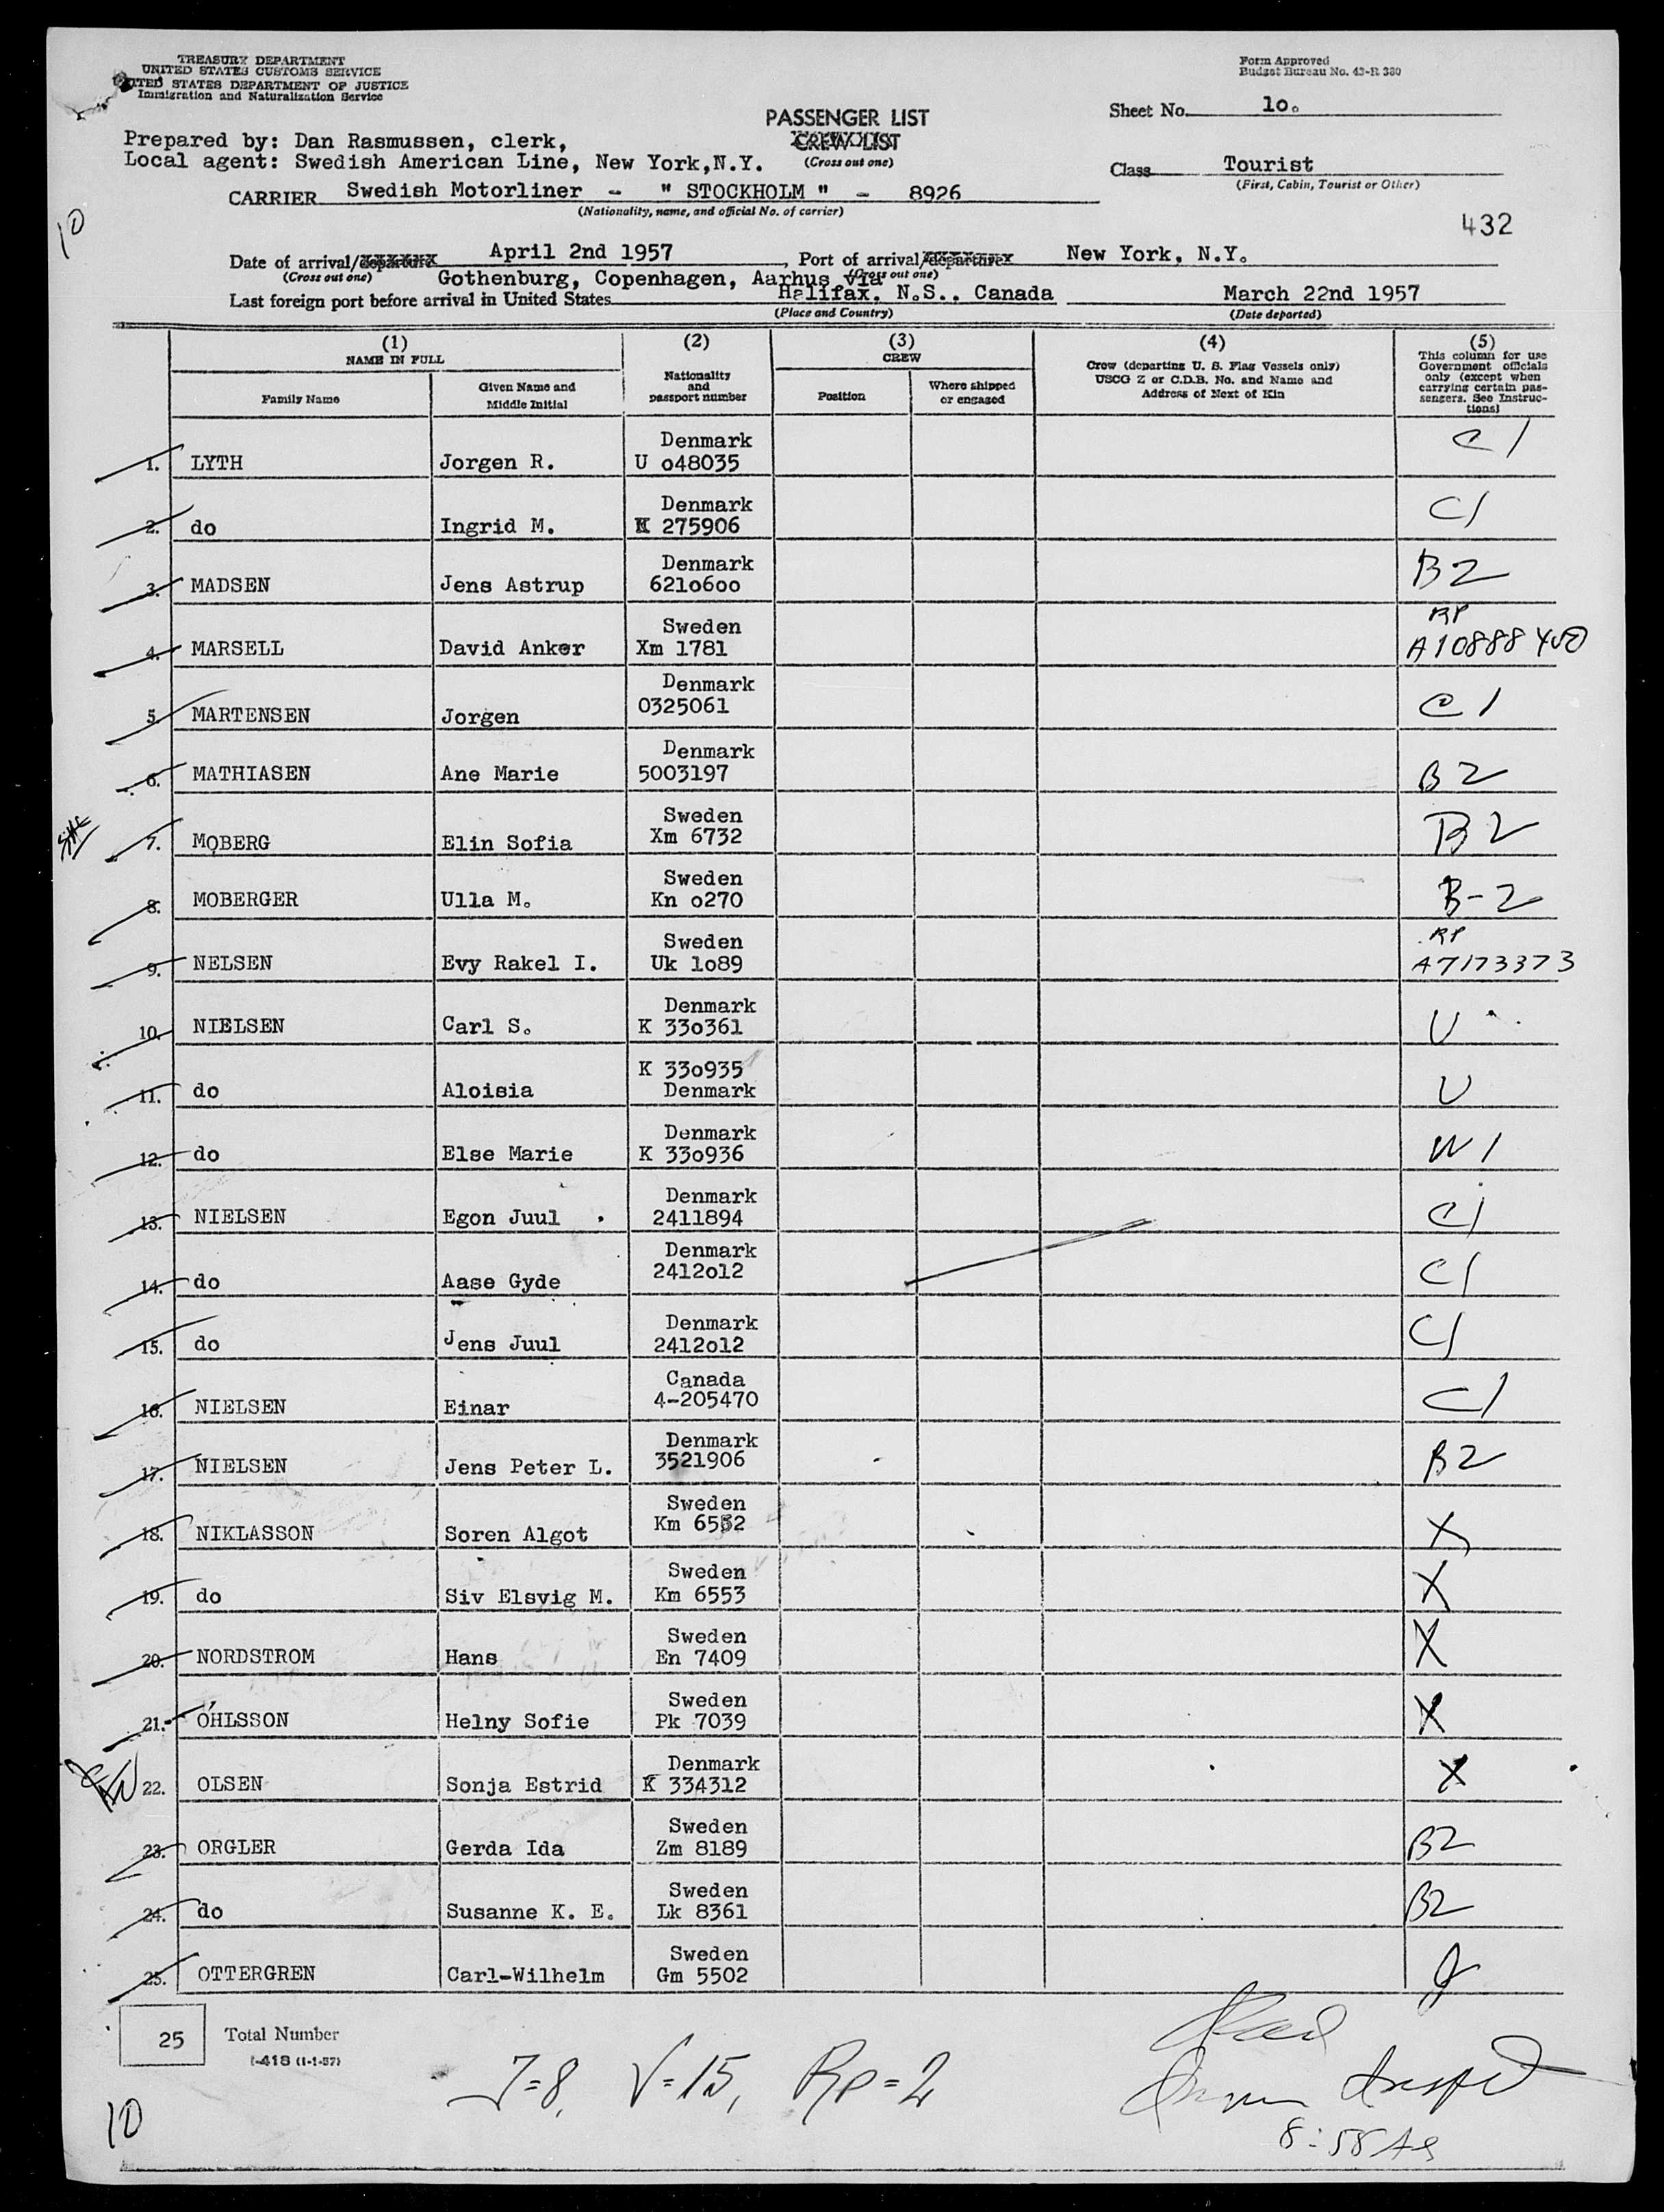 TREASURY DEPARTMENT
UNITED STATES CUSTOMS SERVICE
UNITED STATES DEPARTMENT OF JUSTICE
Immigration and Naturalization Service
Form Approved
Budget Bureau No. 43-R 380
PASSENGER LIST
CREW LIST
(Cross out one)
Sheet No. 1o.
Prepared by: Dan Rasmussen, clerk,
Local agent: Swedish American Line, New York,N.Y.
Class Tourist
(First, Cabin, Tourist or Other)
CARRIER Swedish Motorliner - " STOCKHOLM " - 8926
(Nationality, name, and official No. of carrier)
10
432
Date of arrival/departure April 2nd 1957, Port of arrival/departure New York, N.Y.
(Cross out one) (Cross out one)
Gothenburg, Copenhagen, Aarhus via
Last foreign port before arrival in United States Halifax, N.S., Canada March 22nd 1957
(Place and Country) (Date departed)
(1) NAME IN FULL
Family Name
Given Name and Middle Initial
(2) Nationality and passport number
(3) CREW
Position
Where shipped or engaged
(4) Crew (departing U. S. Flag Vessels only) USCG Z or C.D.B. No. and Name and Address of Next of Kin
(5) This column for use Government officials only (except when carrying certain passengers. See Instructions)
1. LYTH Jorgen R. Denmark U o48035 C1
2. do Ingrid M. Denmark K 275906 C1
3. MADSEN Jens Astrup Denmark 621o6oo B2
4. MARSELL David Anker Sweden Xm 1781 RP A10888450
5. MARTENSEN Jorgen Denmark 0325061 C1
6. MATHIASEN Ane Marie Denmark 5003197 B2
7. MOBERG Elin Sofia Sweden Xm 6732 B2
8. MOBERGER Ulla M. Sweden Kn o270 B-2
9. NELSEN Evy Rakel I. Sweden Uk 1o89 RP A7173373
10. NIELSEN Carl S. Denmark K 33o361 U
11. do Aloisia K 33o935 Denmark U
12. do Else Marie Denmark K 33o936 W1
13. NIELSEN Egon Juul Denmark 2411894 C1
14. do Aase Gyde Denmark 2412o12 C1
15. do Jens Juul Denmark 2412o12 C1
16. NIELSEN Einar Canada 4-205470 C1
17. NIELSEN Jens Peter L. Denmark 3521906 B2
18. NIKLASSON Soren Algot Sweden Km 6552 X
19. do Siv Elsvig M. Sweden Km 6553 X
20. NORDSTROM Hans Sweden En 7409 X
21. OHLSSON Helny Sofie Sweden Pk 7039 X
22. OLSEN Sonja Estrid Denmark K 334312 X
23. ORGLER Gerda Ida Sweden Zm 8189 B2
24. do Susanne K. E. Sweden Lk 8361 B2
25. OTTERGREN Carl-Wilhelm Sweden Gm 5502
25 Total Number
I-418 (1-1-57)
J=8, V=15, Rp=2
8:58
10